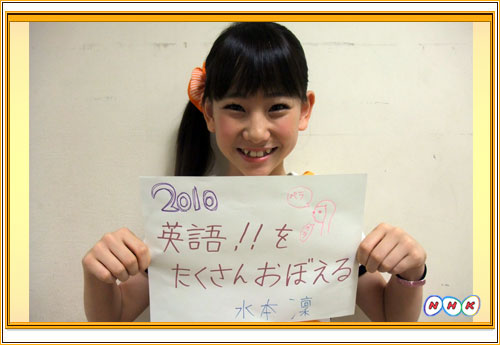 2010
英語!!を
たくさんおぼえる
水本 凜
NHK